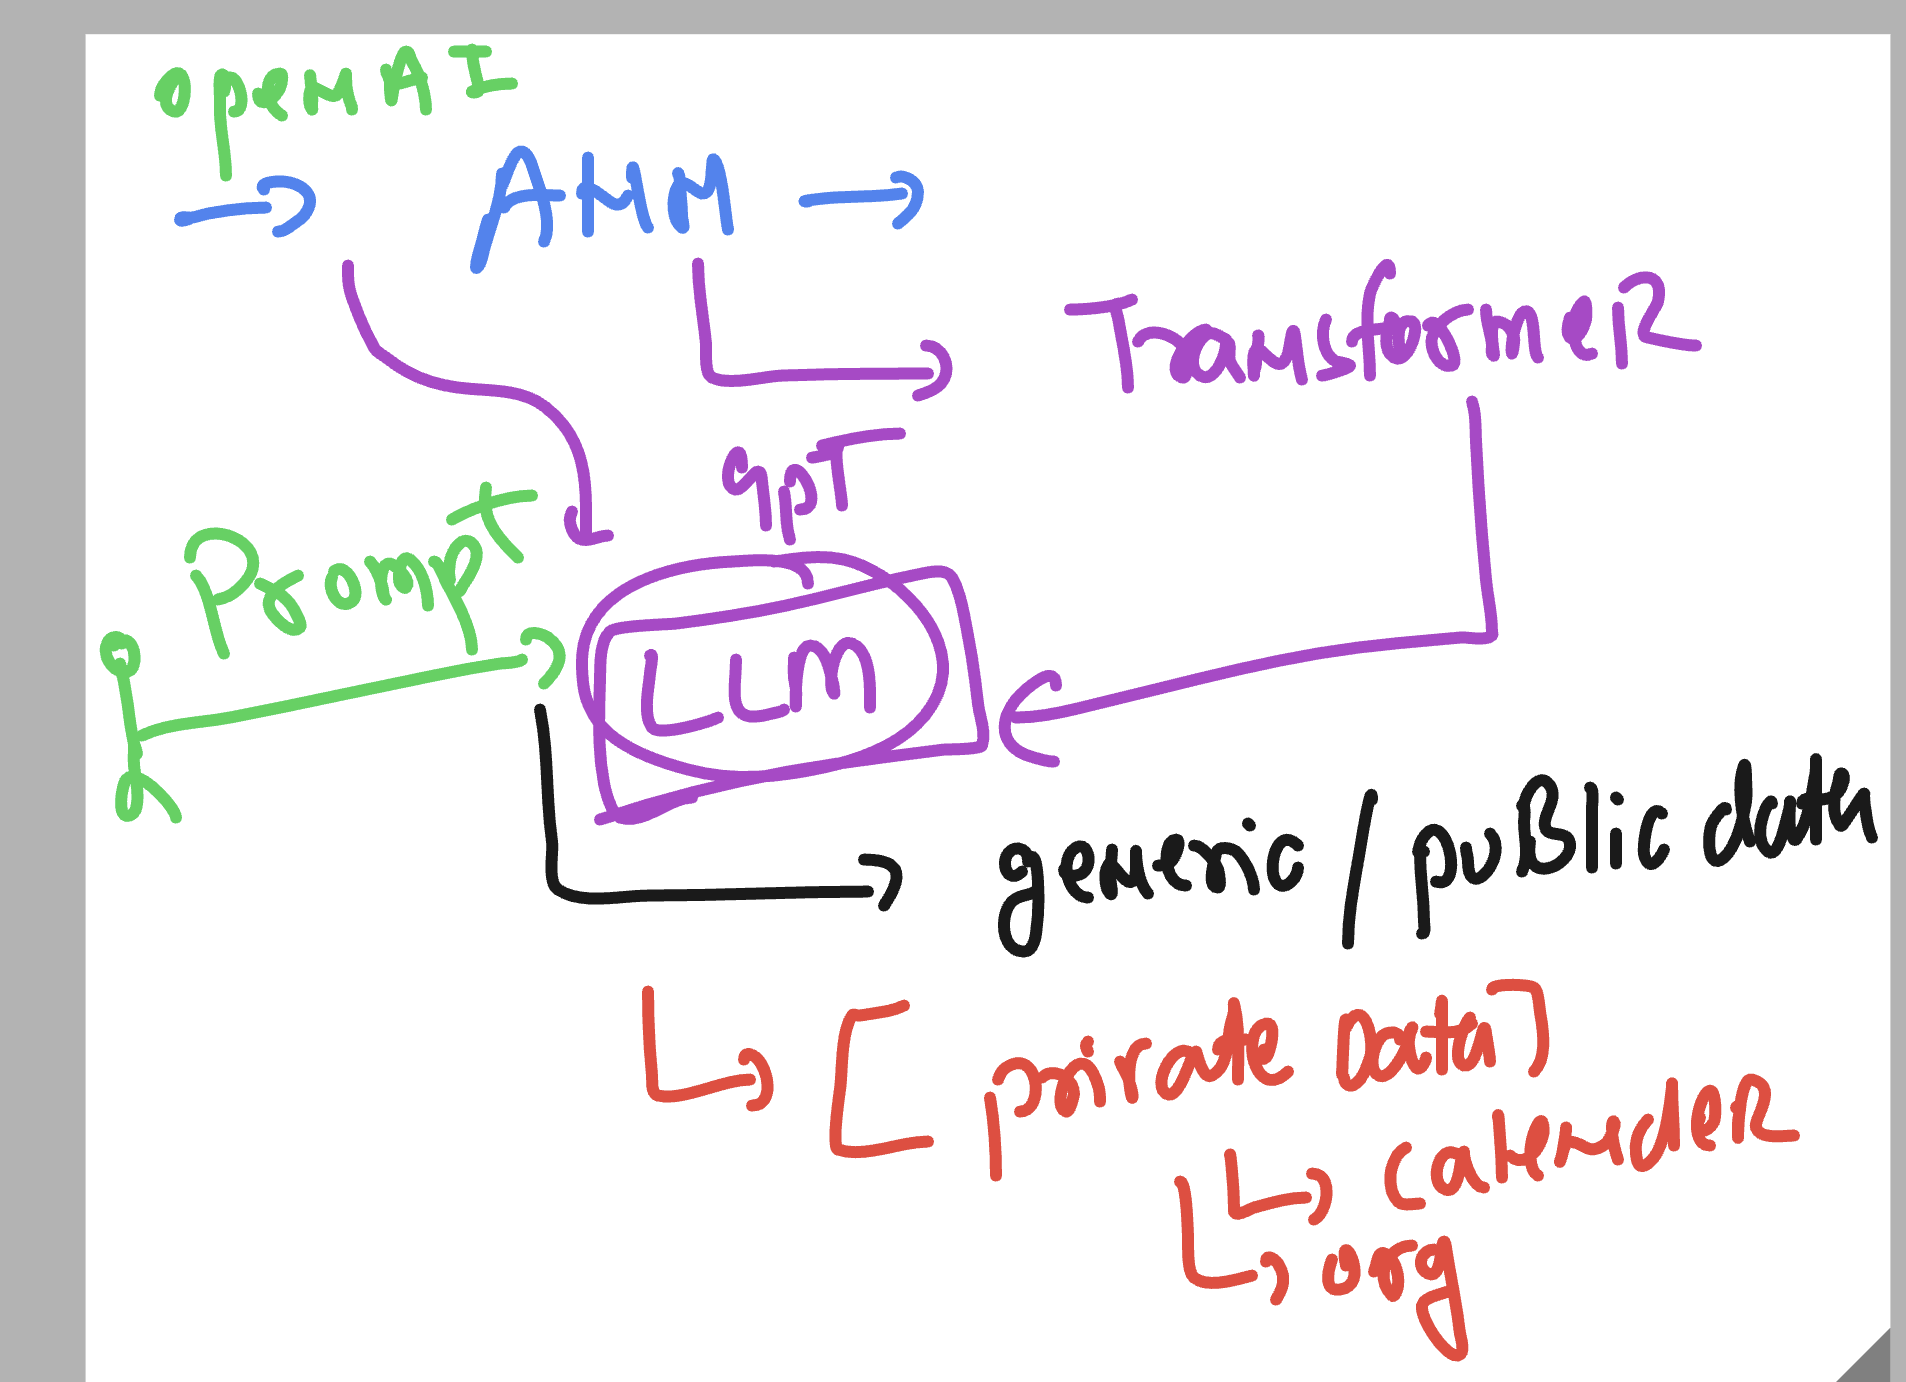 openAI
ANN
TransformeR
gpT
PrompT
LLM
generic / puBlic data
[ private Data ]
calendeR
org